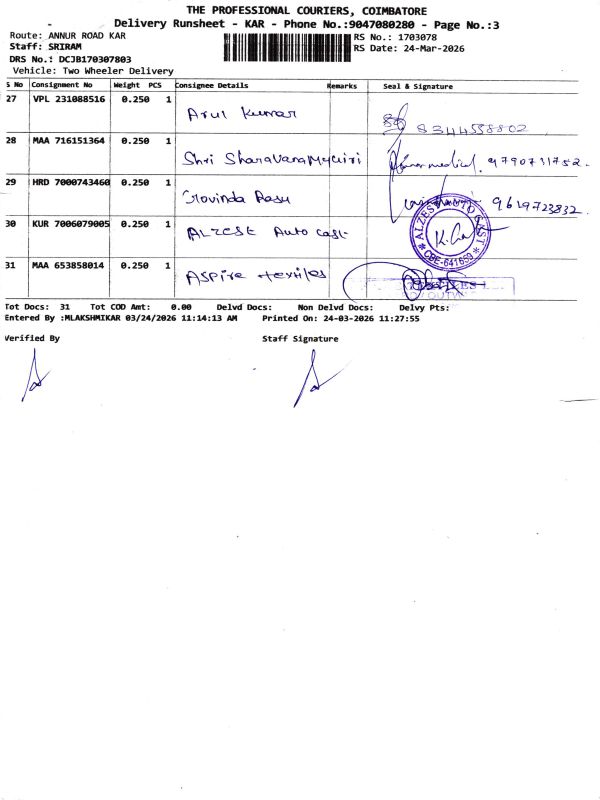 THE PROFESSIONAL COURIERS, COIMBATORE
Delivery Runsheet - KAR - Phone No.:9047080280 - Page No.:3
Route: ANNUR ROAD KAR
RS No.: 1703078
Staff: SRIRAM
RS Date: 24-Mar-2026
DRS No.: DCJB170307803
Vehicle: Two Wheeler Delivery
S No Consignment No Weight PCS Consignee Details Remarks Seal & Signature
27 VPL 231088516 0.250 1 Arul Kumar 8344558802
28 MAA 716151364 0.250 1 Shri 9790731752
29 HRD 7000743460 0.250 1 Govinda Rasu 9619723832
30 KUR 7006079005 0.250 1 ALZEST Auto cast
ALZEST AUTO CAST
* CBE-641659 *
31 MAA 653858014 0.250 1 ASPire textiles
Tot Docs: 31 Tot COD Amt: 0.00 Delvd Docs: Non Delvd Docs: Delvy Pts:
Entered By :MLAKSHMIKAR 03/24/2026 11:14:13 AM Printed On: 24-03-2026 11:27:55
Verified By Staff Signature